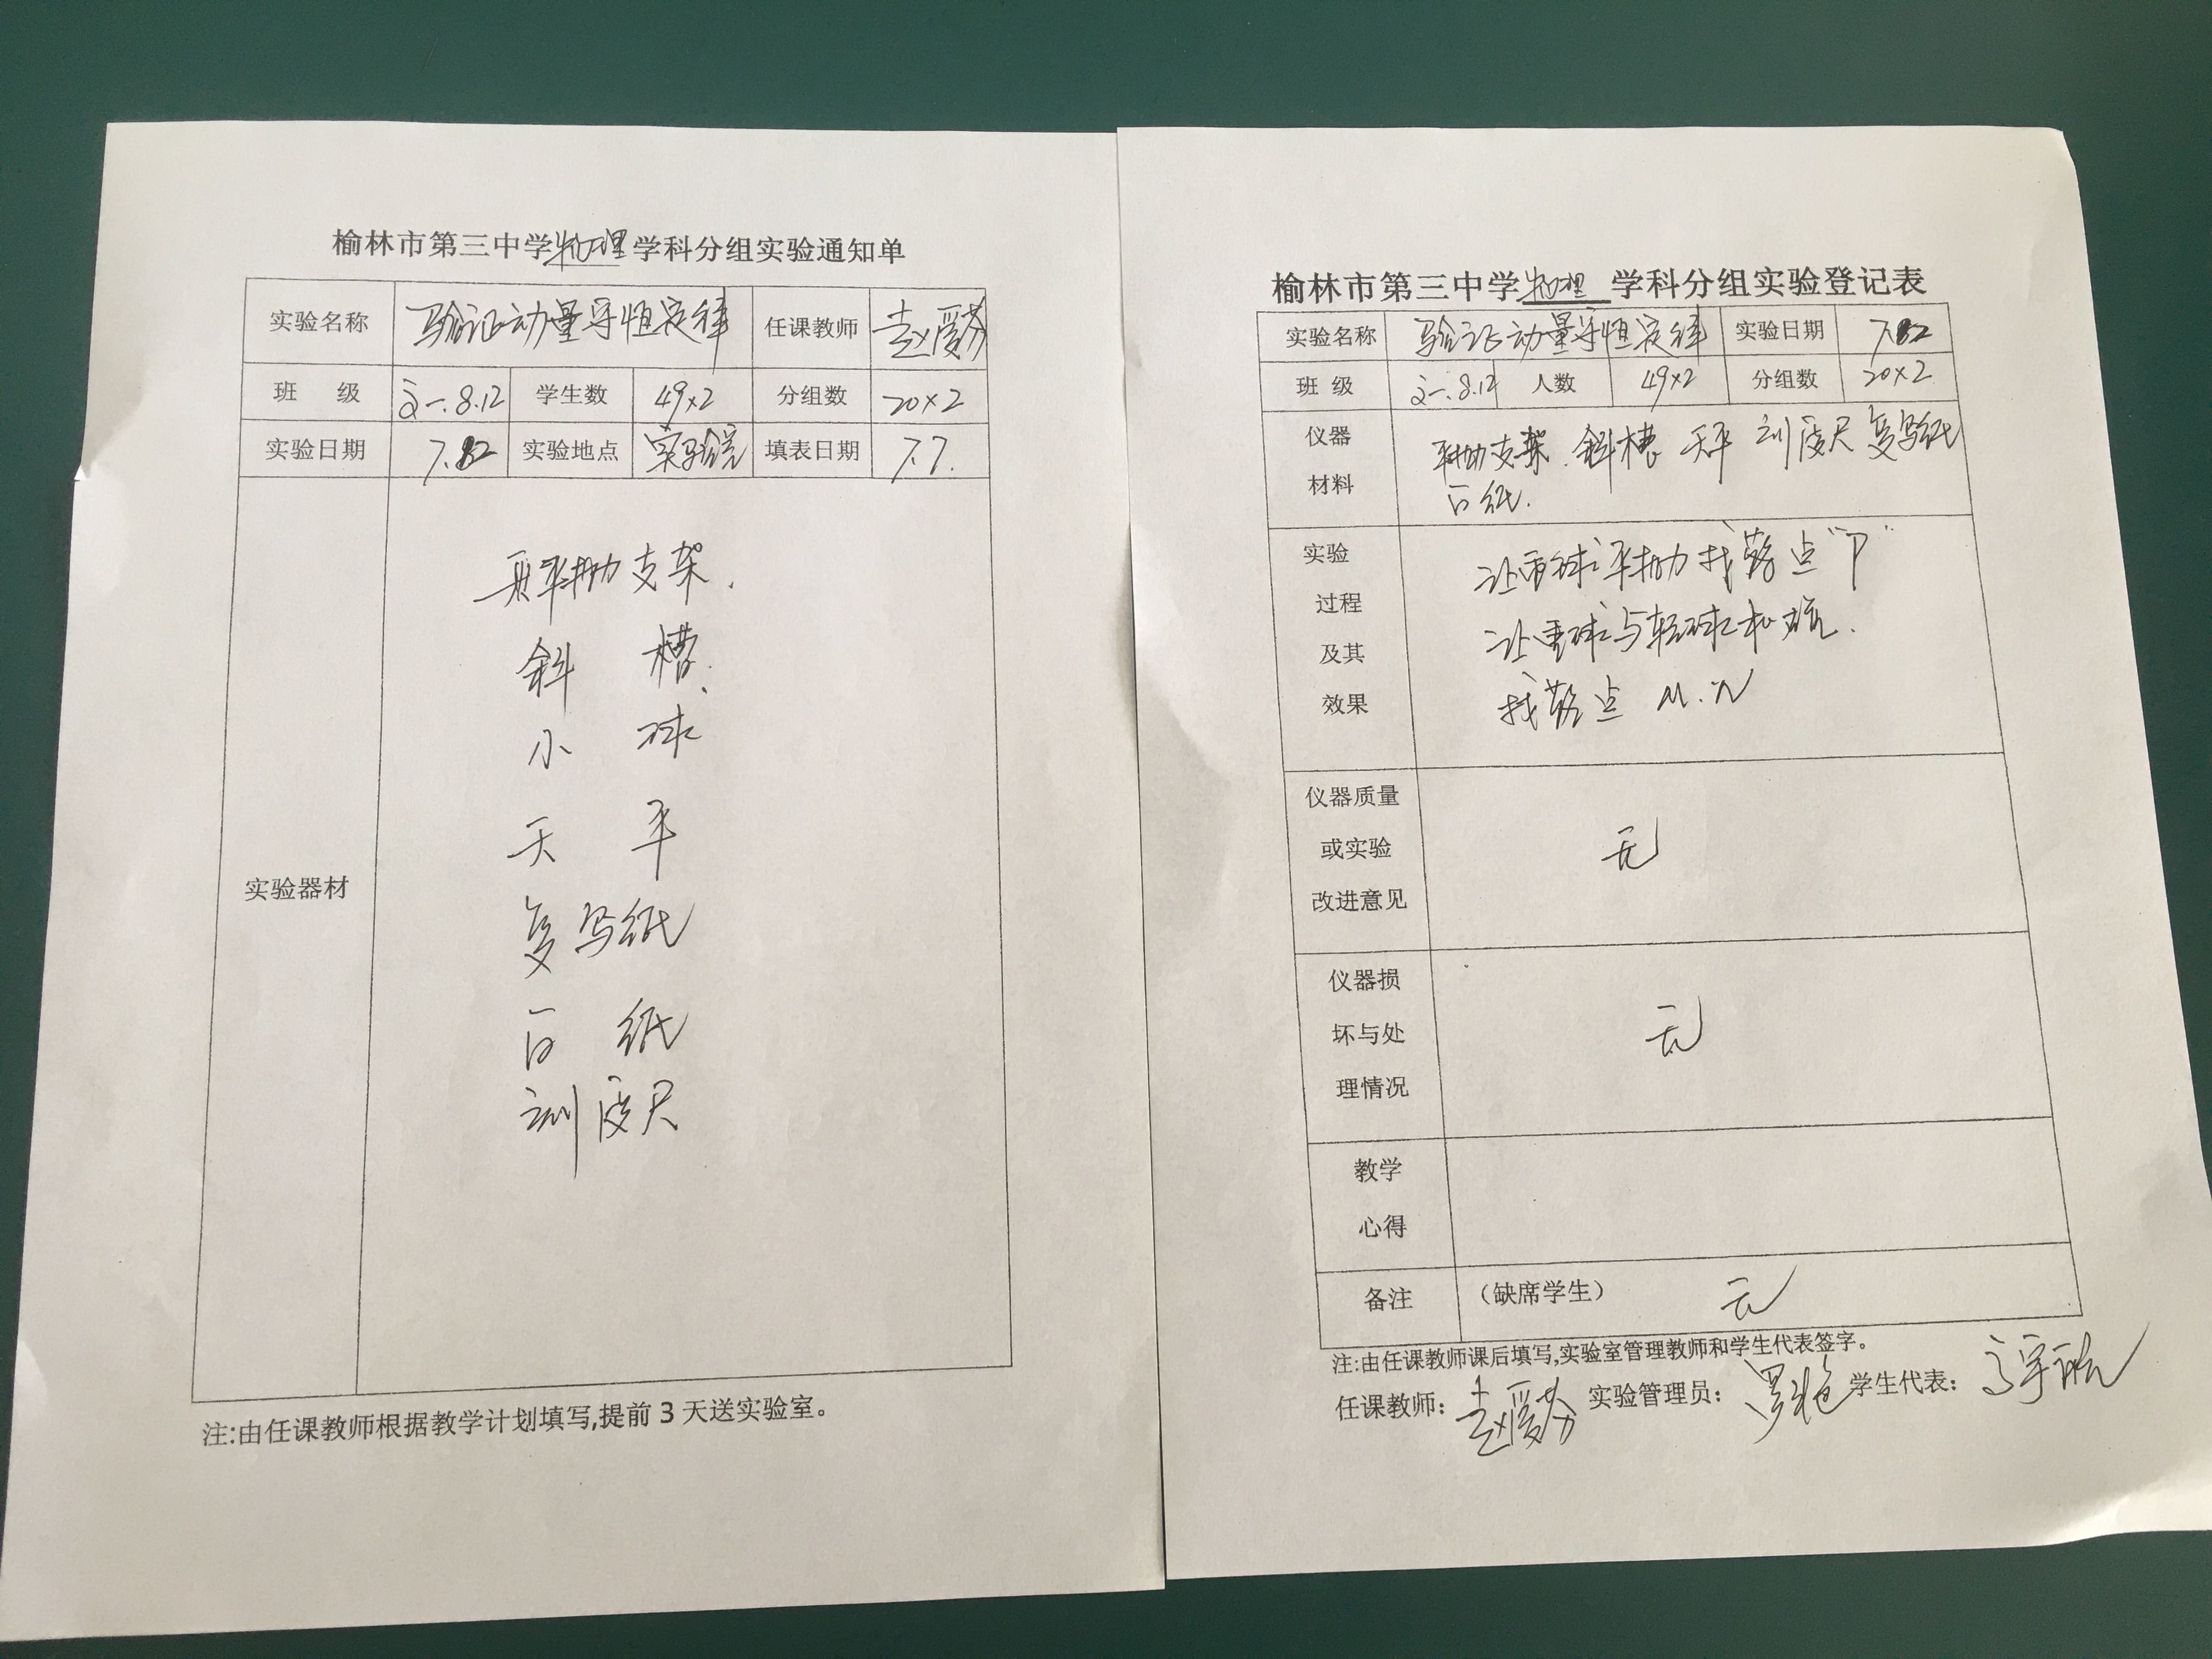 榆林市第三中学物理学科分组实验通知单
实验名称 验证动量守恒定律 任课教师 赵爱芬
班 级 高一.8.12 学生数 49×2 分组数 20×2
实验日期 7. 实验地点 实验室 填表日期 7.7.
实验器材
平抛支架.
斜 槽.
小 球
天 平
复写纸
白 纸
刻度尺
注:由任课教师根据教学计划填写,提前3天送实验室。
榆林市第三中学物理学科分组实验登记表
实验名称 验证动量守恒定律 实验日期 7.
班 级 高一.8.12 人数 49×2 分组数 20×2
仪器材料
平抛支架.斜槽 天平 刻度尺 复写纸
白纸.
实验过程及其效果
让重球平抛 找落点“P”
让重球与轻球相碰.
找落点 M.N
仪器质量或实验改进意见 无
仪器损坏与处理情况 无
教学心得
备注 (缺席学生) 无
注:由任课教师课后填写,实验室管理教师和学生代表签字。
任课教师: 赵爱芬 实验管理员: 学生代表: